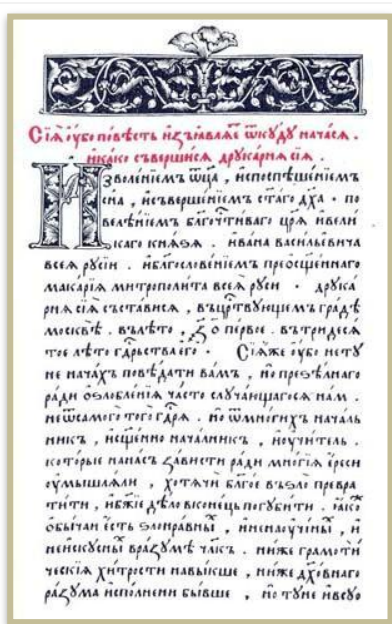 Сїѧ̀ ᲂу҆́бо по́вѣсть и҆зъѧвлѧ́етъ ѿкꙋ́дꙋ нача́сѧ .
и҆ка́ко съверши́сѧ дрꙋка́рнѧ сїѧ̀ .
И҆зволе́нїемъ ѿц҃а̀ , и҆споспѣше́нїемъ
сн҃а , и҆съверше́нїемъ ст҃а́го дх҃а · по
велѣ́нїемъ бл҃гочⷭ҇ти́ваго цр҃ѧ̀ и҆вели́
каго кнѧ́ꙁѧ . и҆ва́на васи́льевича
всеѧ̀ рꙋсі́и . и҆бл҃гослове́нїемъ прео҆сщ҃е́ннаго
мака́рїѧ митрополи́та всеѧ̀ рꙋсі́и · дрꙋка́
рнѧ сїѧ̀ съста́висѧ , въцрⷭ҇твꙋ́ющемъ гра́дѣ
москвѣ̀ . влѣ́то , ҂ꙁ҃ о҃ пе́рвое . вътри́десѧ
тое лѣ́то гдⷭ҇рьства є҆го̀ · Сїѧ́же ᲂу҆́бо нетꙋ́
не нача́хъ повѣ́дати ва́мъ , но҆ преѕѣ́лнаго
ра́ди ѻ҆ѕлобле́нїѧ ча́сто слꙋча́ющагосѧ на́мъ .
неѿсамого̀ того̀ гдⷭ҇рѧ . но҆ ѿмно́гихъ нача́ль
никъ , и҆сщ҃е́нно нача́лникъ , и҆ᲂу҆чи́тель .
кото́рые нана́съ за́висти ра́ди мно́гїѧ є҆́реси
ᲂу҆мышлѧ́ли , хотѧ́чи бл҃го́е въѕло̀ превра
ти́ти , и҆бж҃їе дѣ́ло вконе́цъ погꙋби́ти . ꙗ҆́ко
ѻ҆бы́чаи є҆́сть ѕлонра́вныⷯ , и҆ненаꙋче́ныⷯ , и҆
неи҆скꙋ́сныⷯ вра́зꙋмѣ чл҃къ . ни́же грамоти́
ческїѧ хи́трости навы́кше , ни́же дх҃о́внаго
ра́зꙋма и҆спо́лнени бы́вше , но҆ тꙋ́не и҆всꙋ́ю